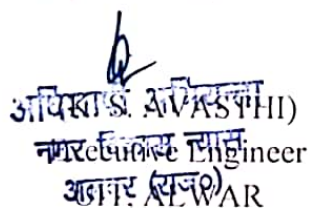 अधिशाषी अभियन्ता
S. AVASTHI)
नगर विकास न्यास
Executive Engineer
अलवर (राज०)
UIT, ALWAR